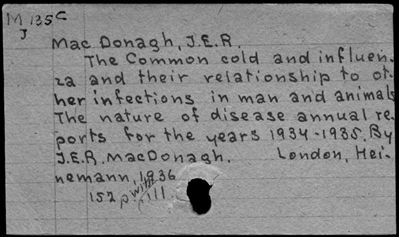 M 135 C
J
Mac Donagh, J.E.R.
The Common cold and influen-
za and their relationship to ot-
her infections in man and animals
The nature of disease annual re-
ports for the years 1934-1935. By
J.E.R. MacDonagh. London, Hei-
nemann, 1936
152 p with ill